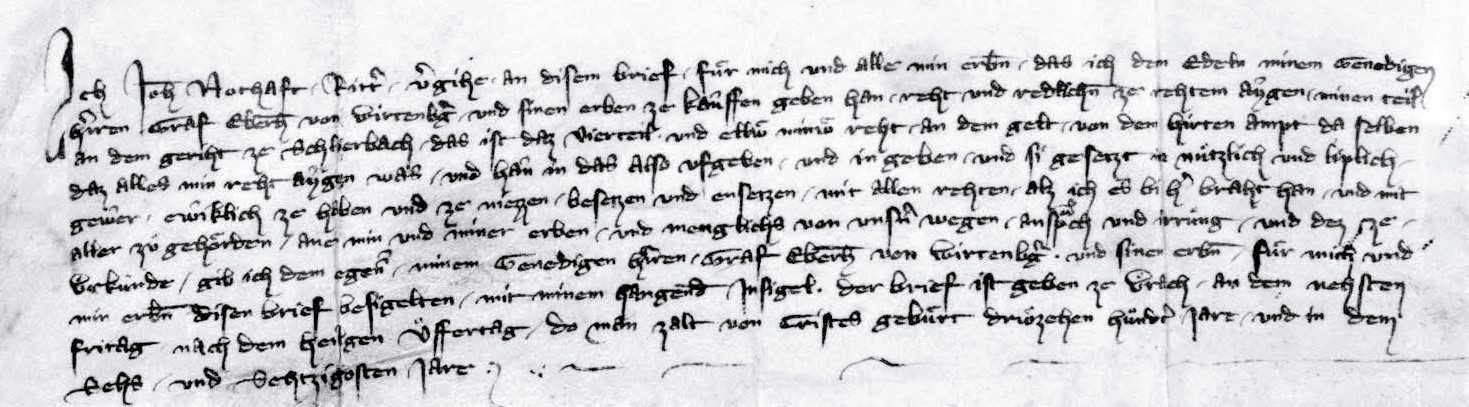 Ich Joh Nothaft Ritt̄ v̄gihe an disem brief fúr mich vnd alle min erbn̄ das ich dem Edeln minem Genedigen
hr̄ren Graf Eberh̄ von Wirtenbḡ vnd sinen erben ze kauffen geben han reht vnd redlichn̄ ze rehtem aygen minen teil
an dem geriht ze Schlierbach das ist daz vierteil vnd ellú minú reht an dem gelt von dem hirten ampt da selben
daz alles min reht aygen was vnd han in das also vfgeben vnd in geben vnd si gesetzt in nútzlich vnd liplich
gewer ewiklich ze haben vnd ze niezzen besetzen vnd ensetzen mit allen rehten alz ich es bi hr̄ braht han vnd mit
aller zů gehörden ane min vnd miner erben vnd menglichs von vnsn̄ wegen ansprach vnd irrung vnd dez ze
vrkúnde gib ich dem egen̄ minem Genedigen hr̄ren Graf Eberh̄ von Wirtenbḡ vnd sinen erbn̄ fúr mich vnd
min erbn̄ disen brief besigelten mit minem hangend Insigel der brief ist geben ze Vrach an dem nehsten
fritag nach dem heiligen Vffertag do man zalt von Cristes gebúrt driözehen hundt̄ Jare vnd in dem
Sehs vnd Sehtzigosten Jare